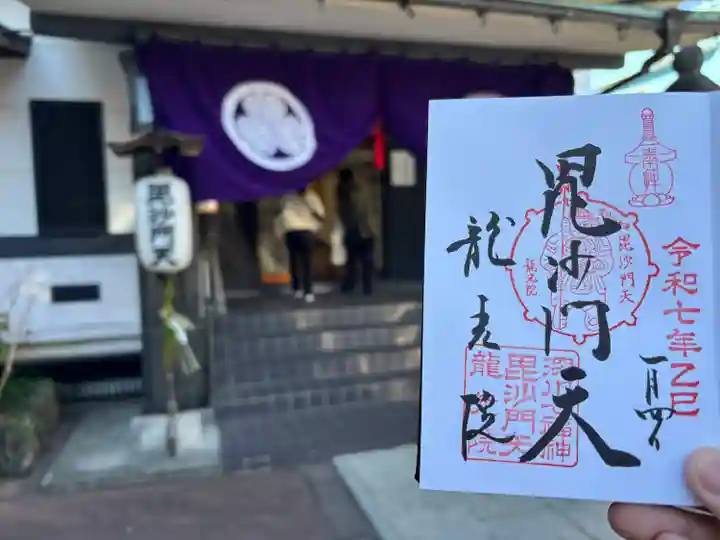 毘沙門天
奉拝
令和七年乙巳
一月四日
毘沙門天
毘沙門天
龍光院
龍光院
深川七福神
毘沙門天
龍光院